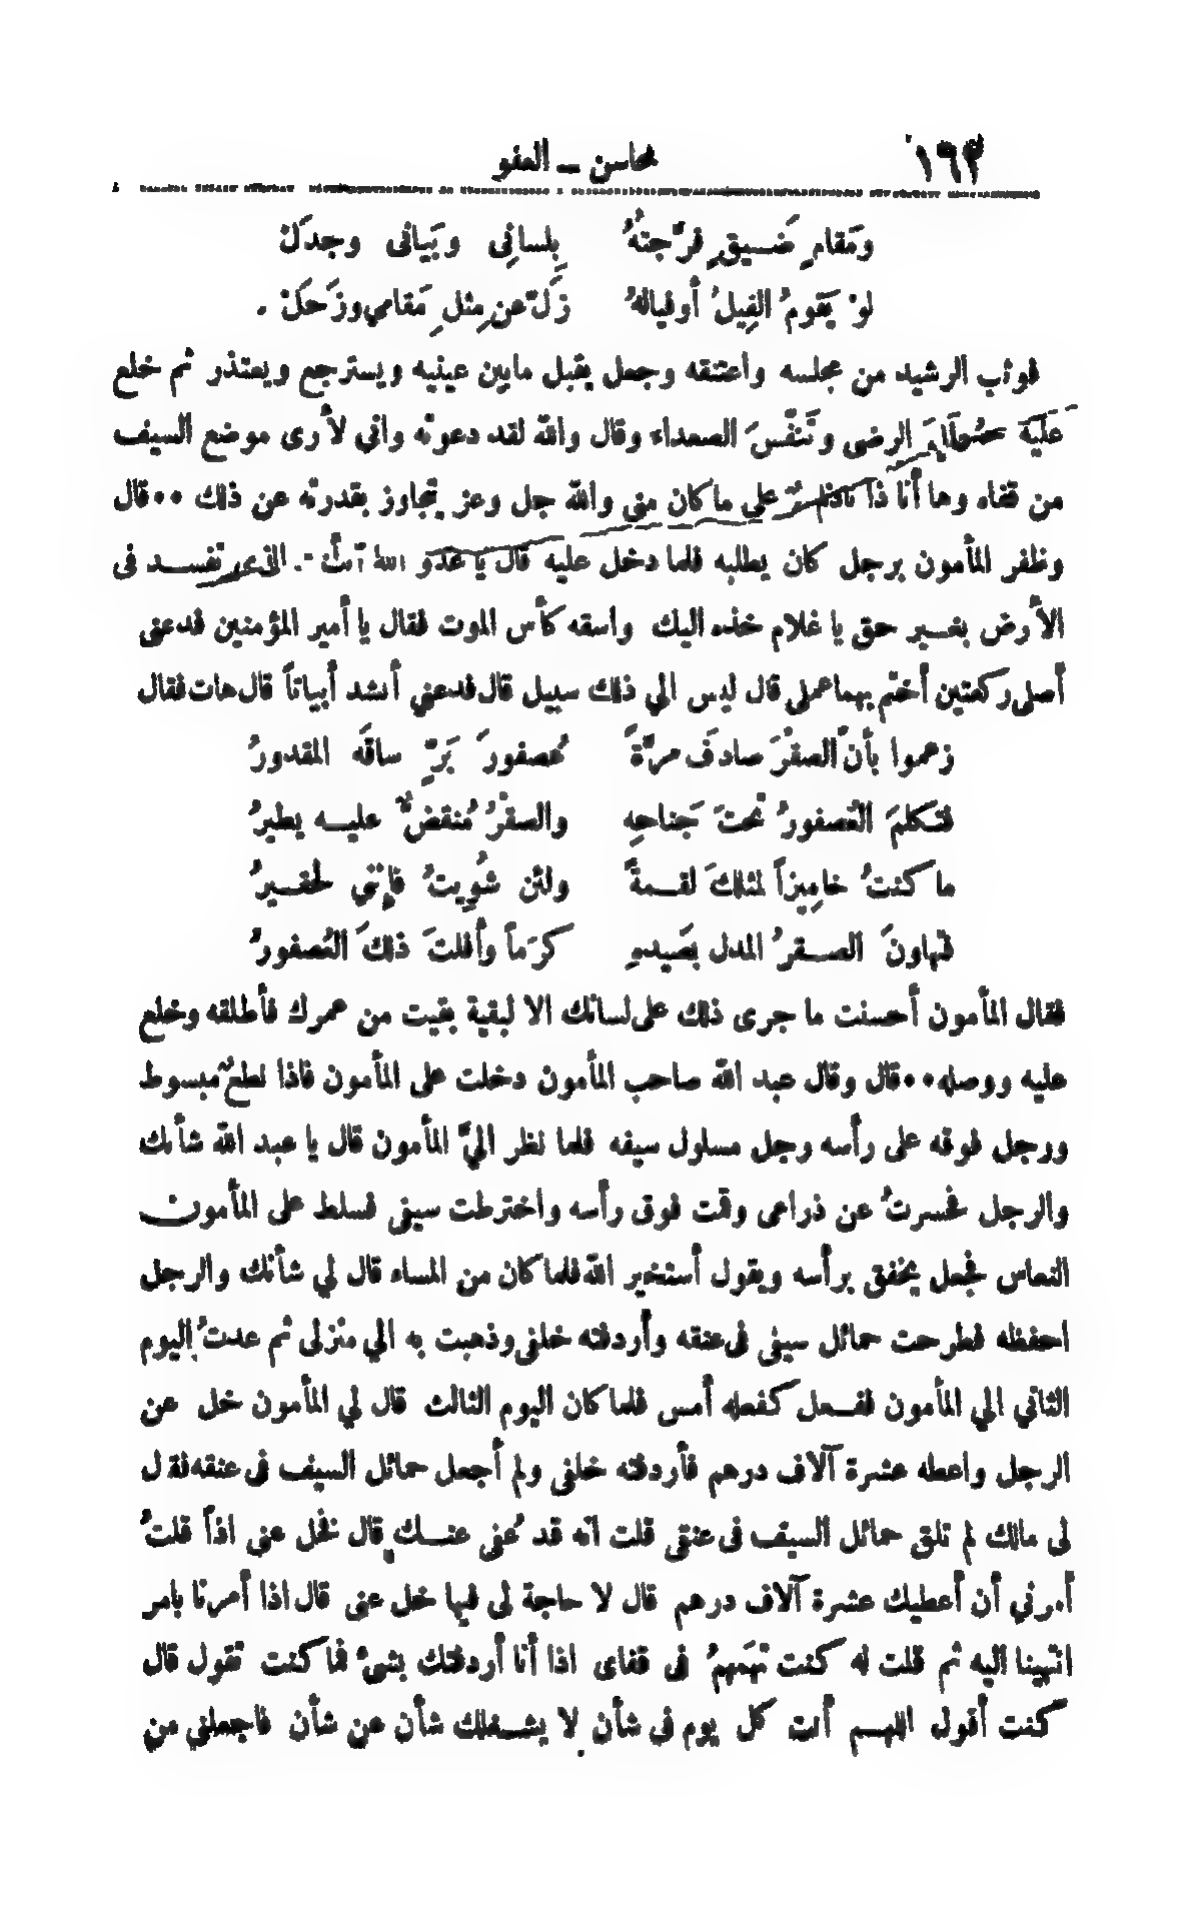 ١٦٢ محاسن ــ العفو
ومَقامٍ ضَـيقٍ فرَّجتهُ بِلسانِى وبَيانى وجدَلْ
لوْ يَقومُ الفِيلُ أوفيالهُ زَلَّ عن مِثلِ مَقامي وزَحَلْ
فوثب الرشيد من مجلسه واعتنقه وجعل يقبل مابين عينيه ويسترجع ويعتذر ثم خلع
عليه الرضى وتنَفَّسَ الصعداء وقال والله لقد دعوته واني لأرى موضع السيف
من قفاه وها أنا ذا على ما كان منى والله جل وعز يتجاوز بقدرته عن ذلك ٠٠ قال
وظفر المأمون برجل كان يطلبه فلما دخل عليه قال يا عدو الله أنت الذى تفسـد فى
الأرض بغـير حق يا غلام خذه اليك واسقه كأس الموت فقال يا أمير المؤمنين فدعنى
أصلى ركعتين أختم بهما عملى قال ليس الي ذلك سبيل قال فدعني أنشد أبياتاً قال هات فقال
زعموا بأنَّ الصقرَ صادفَ مرَّةً عُصفورَ بَرٍّ ساقَه المقدورُ
فتكلمَ العُصفورُ تحتَ جَناحِهِ والسقرُ مُنقضٌّ عليـه يطيرُ
ما كنتُ خامِيزاً لمثلكَ لقـمةً ولئن شُوِيتُ فإنني لحقـيرُ
فتهاونَ الصـقرُ المدل بصَيدهِ كرَماً وأُفلتَ ذلكَ العُصفورُ
فقال المأمون أحسنت ما جرى ذلك على لسانك الا لبقية بقيت من عمرك فأطلقه وخلع
عليه ووصله ٠٠ قال وقال عبد الله صاحب المأمون دخلت على المأمون فاذا نطعٌ مبسوط
ورجل فوقه على رأسه رجل مسلول سيفه فلما نظر اليَّ المأمون قال يا عبد الله شأنك
والرجل فحسرتُ عن ذراعى وقمت فوق رأسه واخترطت سيفى فسلط على المأمون
النعاس فجعل يخفق برأسه ويقول أستخير الله فلما كان من المساء قال لي شأنك والرجل
احفظه فطرحت حمائل سيفى فى عنقه وأردفته خلفى وذهبت به الي منزلى ثم عدتُ اليوم
الثاني الي المأمون ففـعل كفعله أمس فلما كان اليوم الثالث قال لي المأمون خل عن
الرجل واعطه عشرة آلاف درهم فأردفته خلفى ولم أجعل حمائل السيف فى عنقه فقال
لى مالك لم تلق حمائل السيف فى عنقى قلت انه قد عُفى عنـك قال فخل عنى اذاً قلتُ
أمرني أن أعطيك عشرة آلاف درهم قال لا حاجة لى فيها خل عنى قال اذا أمرنا بامر
انتهينا اليه ثم قلت له كنت تهَمهمُ فى قفاى اذا أنا أردفتك بشئ فما كنت تقول قال
كنت أقول اللهـم أنت كل يوم فى شأن لا يشـغلك شأن عن شأن فاجعلنى من